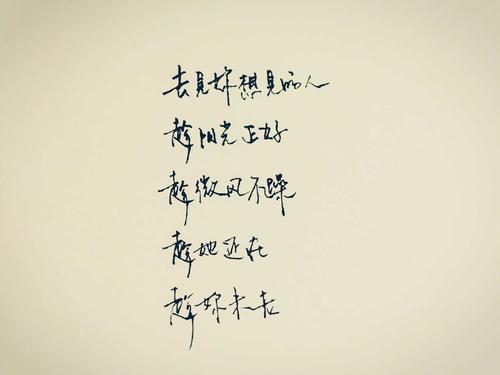 去见妳想见的人
趁阳光正好
趁微风不躁
趁她还在
趁妳未老